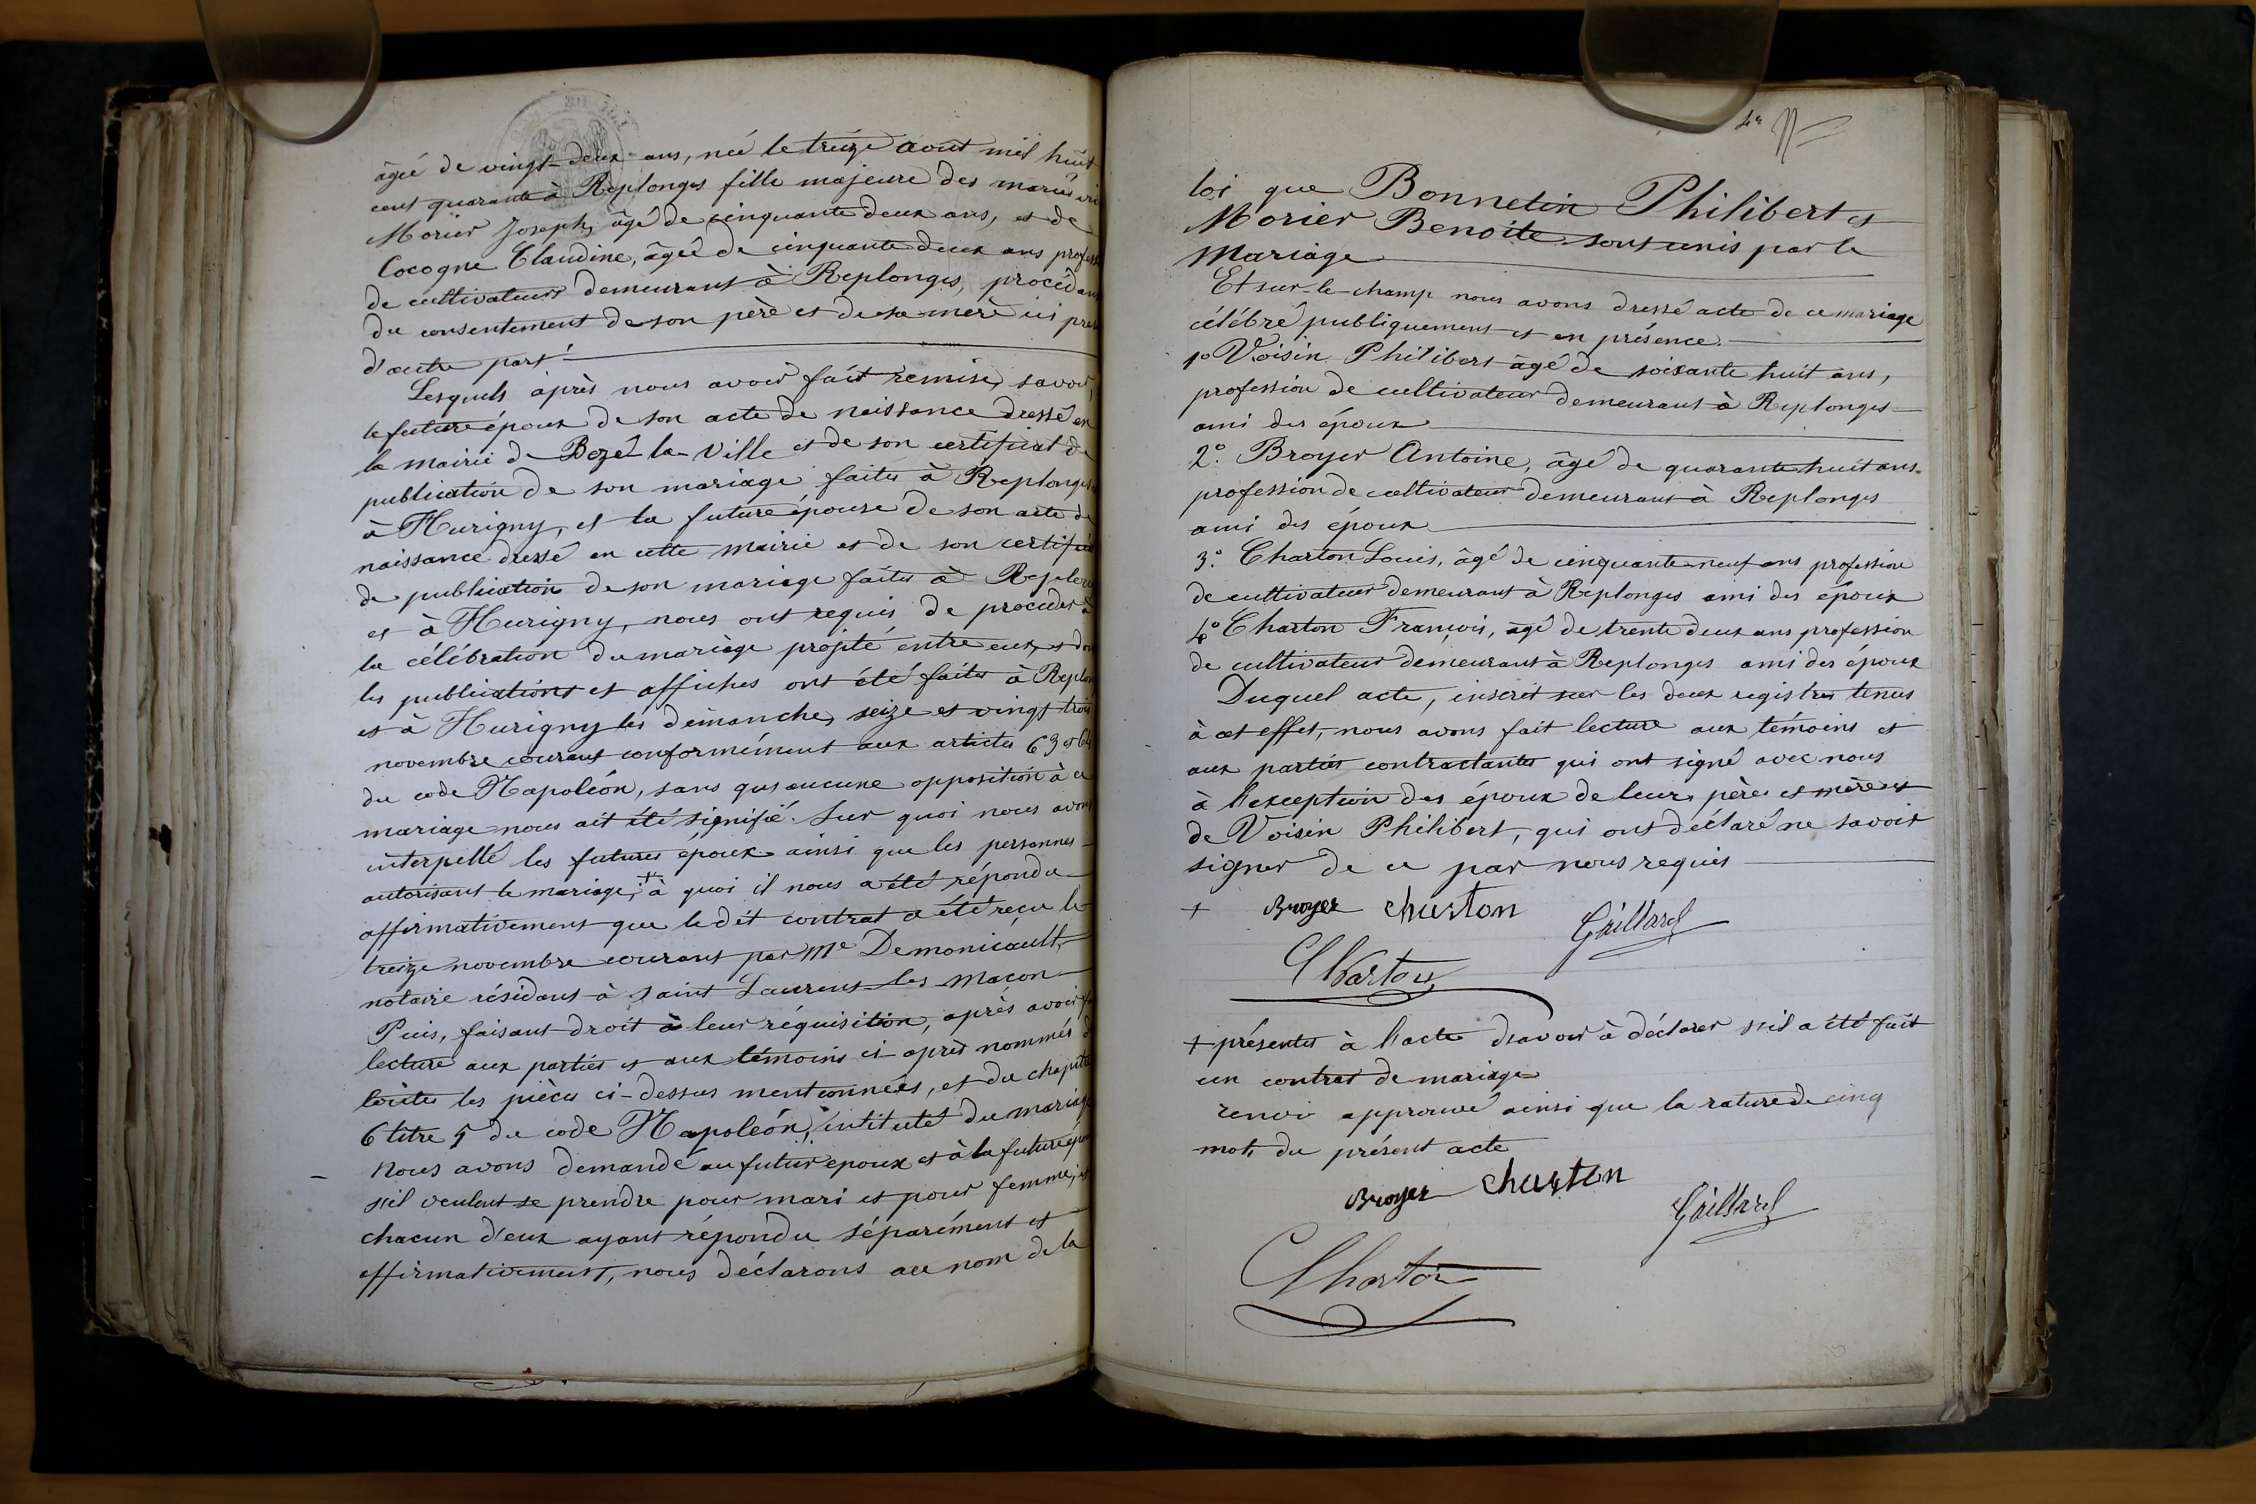 âgée de vingt-deux ans, née le treize août mil huit
cent quarante à Replonges fille majeure des mariés
Morier Joseph, âgé de cinquante deux ans, et de
Cocogne Claudine, âgée de cinquante deux ans profess
de cultivateurs demeurant à Replonges, procédant
du consentement de son père et de sa mère ici prés
d'autre part
Lesquels après nous avoir fait remise, savoir,
le future époux de son acte de naissance dressé en
la mairie de Bagé-la-Ville et de son certificat de
publication de son mariage faites à Replonges
à Hurigny, et la future épouse de son acte de
naissance dressé en cette mairie et de son certifi
de publication de son mariage faites à Replon
et à Hurigny, nous ont requis de procéder à
la célébration du mariage projeté entre eux, et dont
les publications et affiches ont été faites à Replon
et à Hurigny les dimanches seize et vingt trois
novembre courant conformément aux articles 63 et 64
du code Napoléon, sans qu'aucune opposition à ce
mariage nous ait été signifié. Sur quoi nous avons
interpellé les futures époux ainsi que les personnes
autorisant le mariage, + à quoi il nous a été répondu
affirmativement que le dit contrat a été reçu le
treize novembre courant par Me Demonicault,
notaire résidant à Saint Laurent-les-Macon
Puis, faisant droit à leur réquisition, après avoir fa
lecture aux parties et aux témoins ci-après nommés d
toutes les pièces ci-dessus mentionnées, et du chapitre
6 titre 5 du code Napoléon, intitulé du mariage
Nous avons demandé au futur époux et à la future épou
s'il veulent se prendre pour mari et pour femme, et
chacun d'eux ayant répondu séparément et
affirmativement, nous déclarons au nom de la
loi que Bonnetin Philibert et
Morier Benoite sont unis par le
mariage
Et sur-le-champ nous avons dressé acte de ce mariage
célébré publiquement et en présence.
1o Voisin Philibert âgé de soixante huit ans,
profession de cultivateur demeurant à Replonges
ami des époux
2o. Broyer Antoine, âgé de quarante-huit ans.
profession de cultivateur demeurant à Replonges
ami des époux
3o. Charton Louis, âgé de cinquante-neuf ans profession
de cultivateur demeurant à Replonges ami des époux
4o Charton François, âgé de trente deux ans profession
de cultivateur demeurant à Replonges ami des époux
Duquel acte, inscrit sur les deux registres tenus
à cet effet, nous avons fait lecture aux témoins et
aux parties contractantes qui ont signé avec nous
à l'exception des époux de leurs pères et mères et
de Voisin Philibert, qui ont déclaré ne savoir
signer de ce par nous requis
+ Broyer charton Gaillard
Charton
+ présentes à l'acte d'avoir à déclarer s'il a été fait
un contrat de mariage
renvoi approuvé ainsi que la rature de cinq
mots du présent acte
Broyer charton Gaillard
Charton